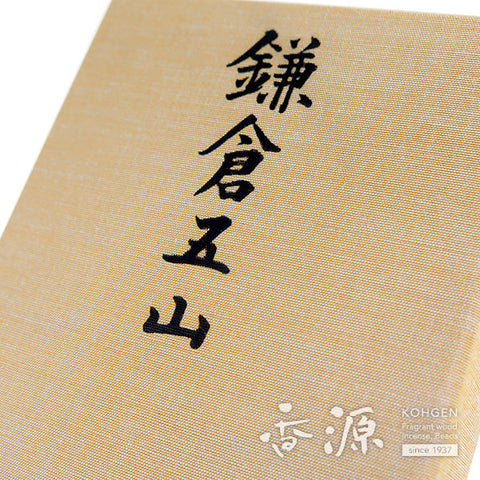 鎌倉五山
香源
KOHGEN
Fragrant wood
Incense, Beads
since 1937